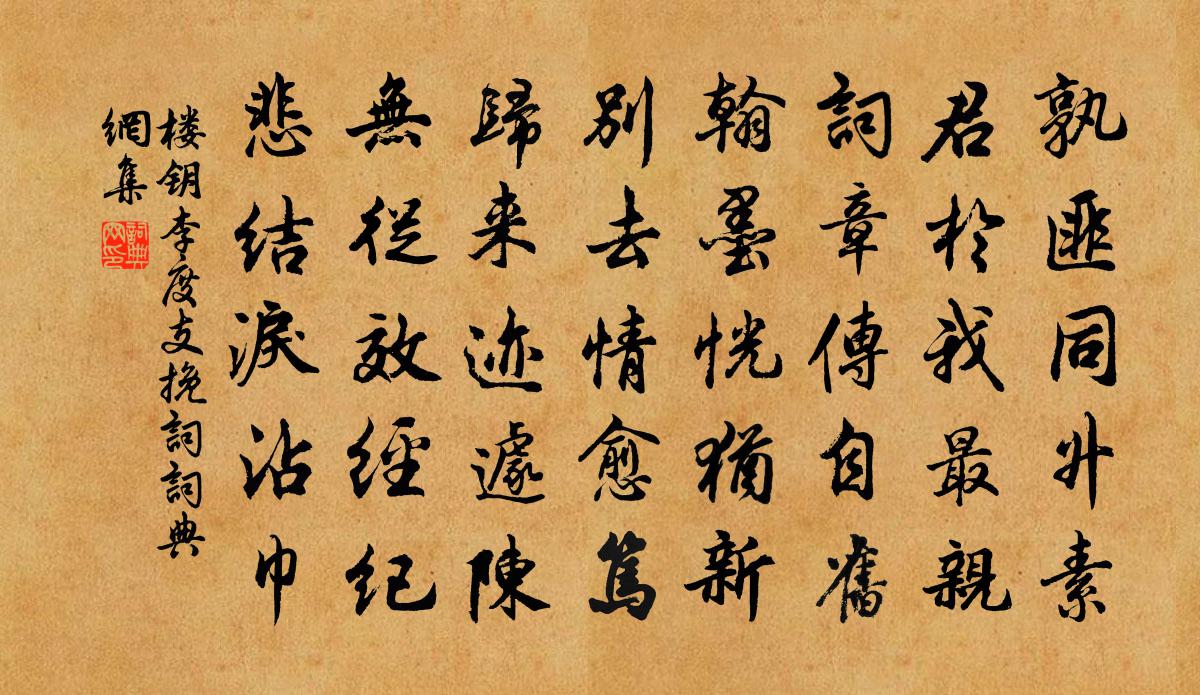 孰匪同升素
君於我最親
詞章傳自舊
翰墨恍猶新
別去情愈篤
歸来迹遽陳
無從效經紀
悲結淚沾巾
楼钥李度支挽詞詞典
網集
詞典
网印